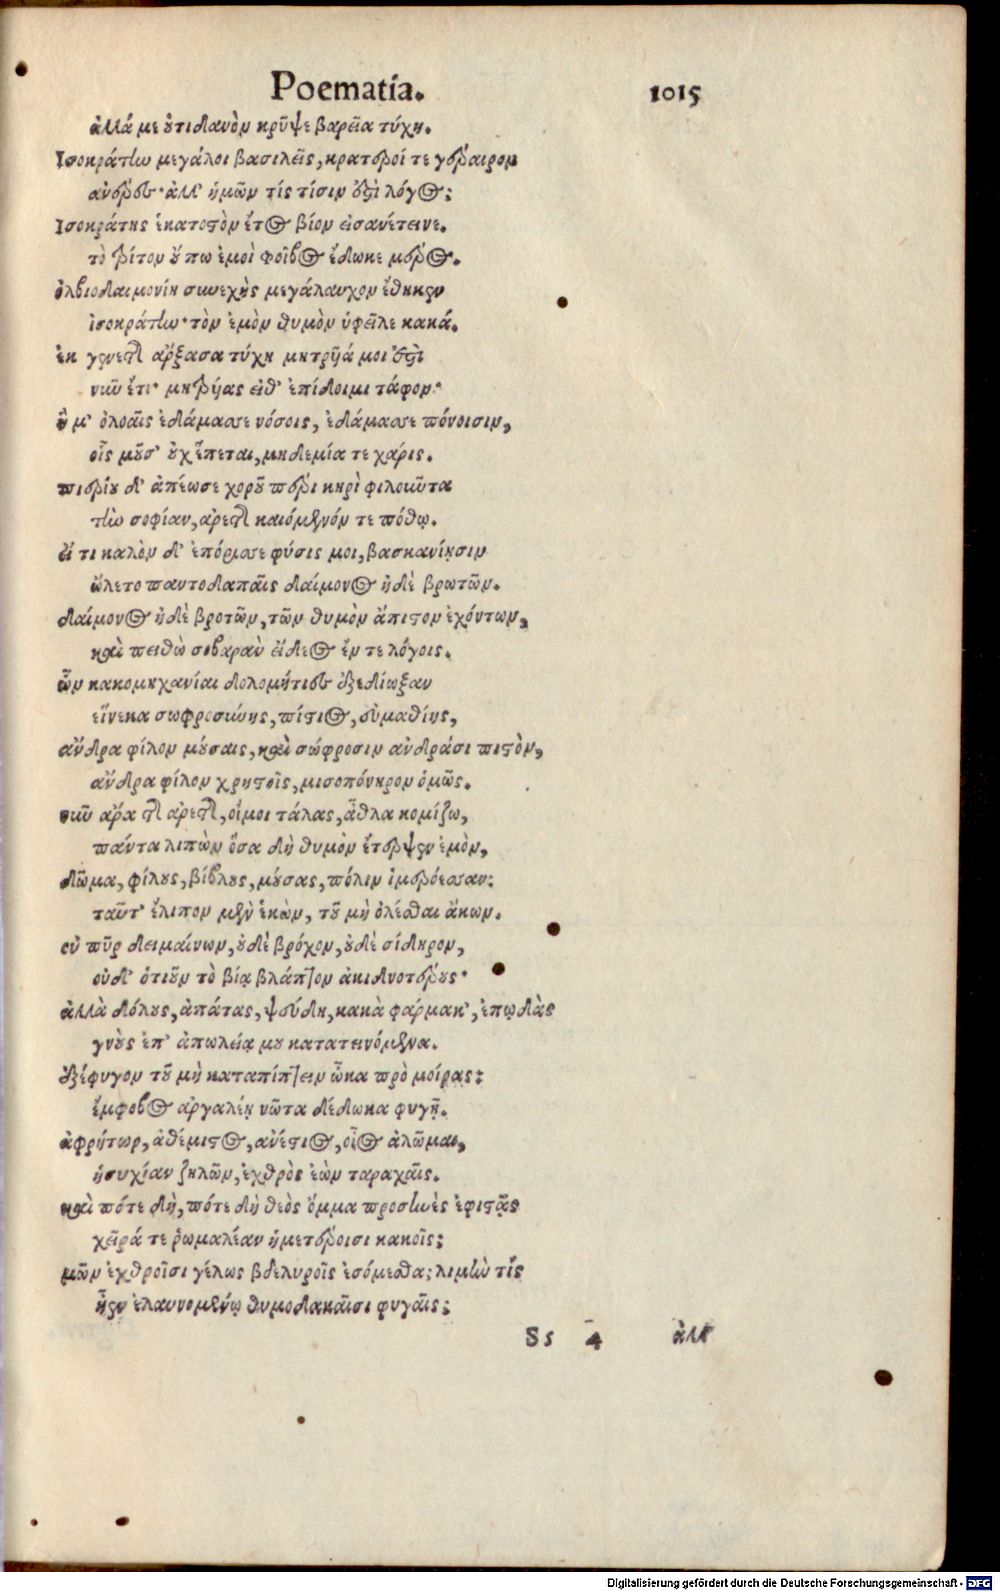 Poematia. 1015
ἀλλά με ὐτιδανὸν κρῦψε βαρεῖα τύχη.
Ισοκράτην μεγάλοι βασιλεῖς, κρατεροί τε γέραιρον
ἀνέρες· ἀλλ' ἡμῶν τίς τίσιν ἐστὶ λόγος;
Ισοκράτης ἑκατοστὸν ἔτος βίον εἰσανέτεινε.
τὸ τρίτον οὔπω ἐμοὶ φοῖβος ἔδωκε μέρος.
ὀλβιοδαιμονίη συνεχὴς μεγάλαυχον ἔθηκεν
ἰσοκράτην· τὸν ἐμὸν θυμὸν ὑφεῖλε κακά.
ἐκ γενετῆς ἄρξασα τύχη μητρῃά μοι ἐστὶ
νῦν ἔτι· μητρῃᾶς εἴθ' ἐπίδοιμι τάφον·
ἥ μ' ὀλοαῖς ἐδάμασσε νόσοις, ἐδάμασσε πόνοισιν,
οἷς μοῦσ' οὐχ ἕπεται, μηδεμία τε χάρις.
πιερίου δ' ἀπέωσε χοροῦ πέρι κηρὶ φιλοῦντα
τὴν σοφίαν, ἀρετῆς καιόμενόν τε πόθῳ.
εἴ τι καλὸν δ' ἐπόρισσε φύσις μοι, βασκανίῃσιν
ὤλετο παντοδαπαῖς δαίμονος ἠδὲ βρωτῶν.
δαίμονος ἠδὲ βροτῶν, τῶν θυμὸν ἄπιστον ἐχόντων,
καὶ πειθὼ σοβαρὰν εἴδεος ἔν τε λόγοις.
ὧν κακομηχανίαι δολομήτιες ἐξεδίωξαν
εἵνεκα σωφροσύνης, πίστιος, εὐμαθίης,
ἄνδρα φίλον μούσαις, καὶ σώφροσιν ἀνδράσι πιστὸν,
ἄνδρα φίλον χρηστοῖς, μισοπόνηρον ὁμῶς.
νῦν ἄρα τῆς ἀρετῆς, οἴμοι τάλας, ἆθλα κομίζω,
πάντα λιπὼν ὅσα δὴ θυμὸν ἔτερψεν ἐμὸν,
δῶμα, φίλους, βίβλους, μούσας, πόλιν ἱμερόεσσαν:
ταῦτ' ἔλιπον μὲν ἑκὼν, τοῦ μὴ ὀλέσθαι ἄκων.
οὐ πῦρ δειμαίνων, οὐδὲ βρόχον, οὐδὲ σίδηρον,
οὐδ' ὁτιοῦν τὸ βίᾳ βλάπτον ἀκιδνοτέρους·
ἀλλὰ δόλους, ἀπάτας, ψεύδη, κακὰ φάρμακ', ἐπῳδὰς
γνοὺς ἐπ' ἀπωλείᾳ μου κατατεινόμενα.
ἐξέφυγον τοῦ μὴ καταπίπτειν ὦκα πρὸ μοίρας:
ἔμφοβος ἀργαλέῃ νῶτα δέδωκα φυγῇ.
ἀφρήτωρ, ἀθέμιστος, ἀνέστιος, οἶος ἀλῶμαι,
ἡσυχίαν ζηλῶν, ἐχθρὸς ἐὼν ταραχαῖς.
καὶ πότε δὴ, πότε δὴ θεὸς ὄμμα προσηνὲς ἐφιστᾷς
χεῖρά τε ῥωμαλέαν ἡμετέροισι κακοῖς;
μῶν ἐχθροῖσι γέλως βδελυροῖς ἐσόμεσθα; λιμὴν τίς
ᾗεν ἐλαυνομένῳ θυμοδακαῖσι φυγαῖς;
Ss 4 ἀλλ'
Digitalisierung gefördert durch die Deutsche Forschungsgemeinschaft - DFG